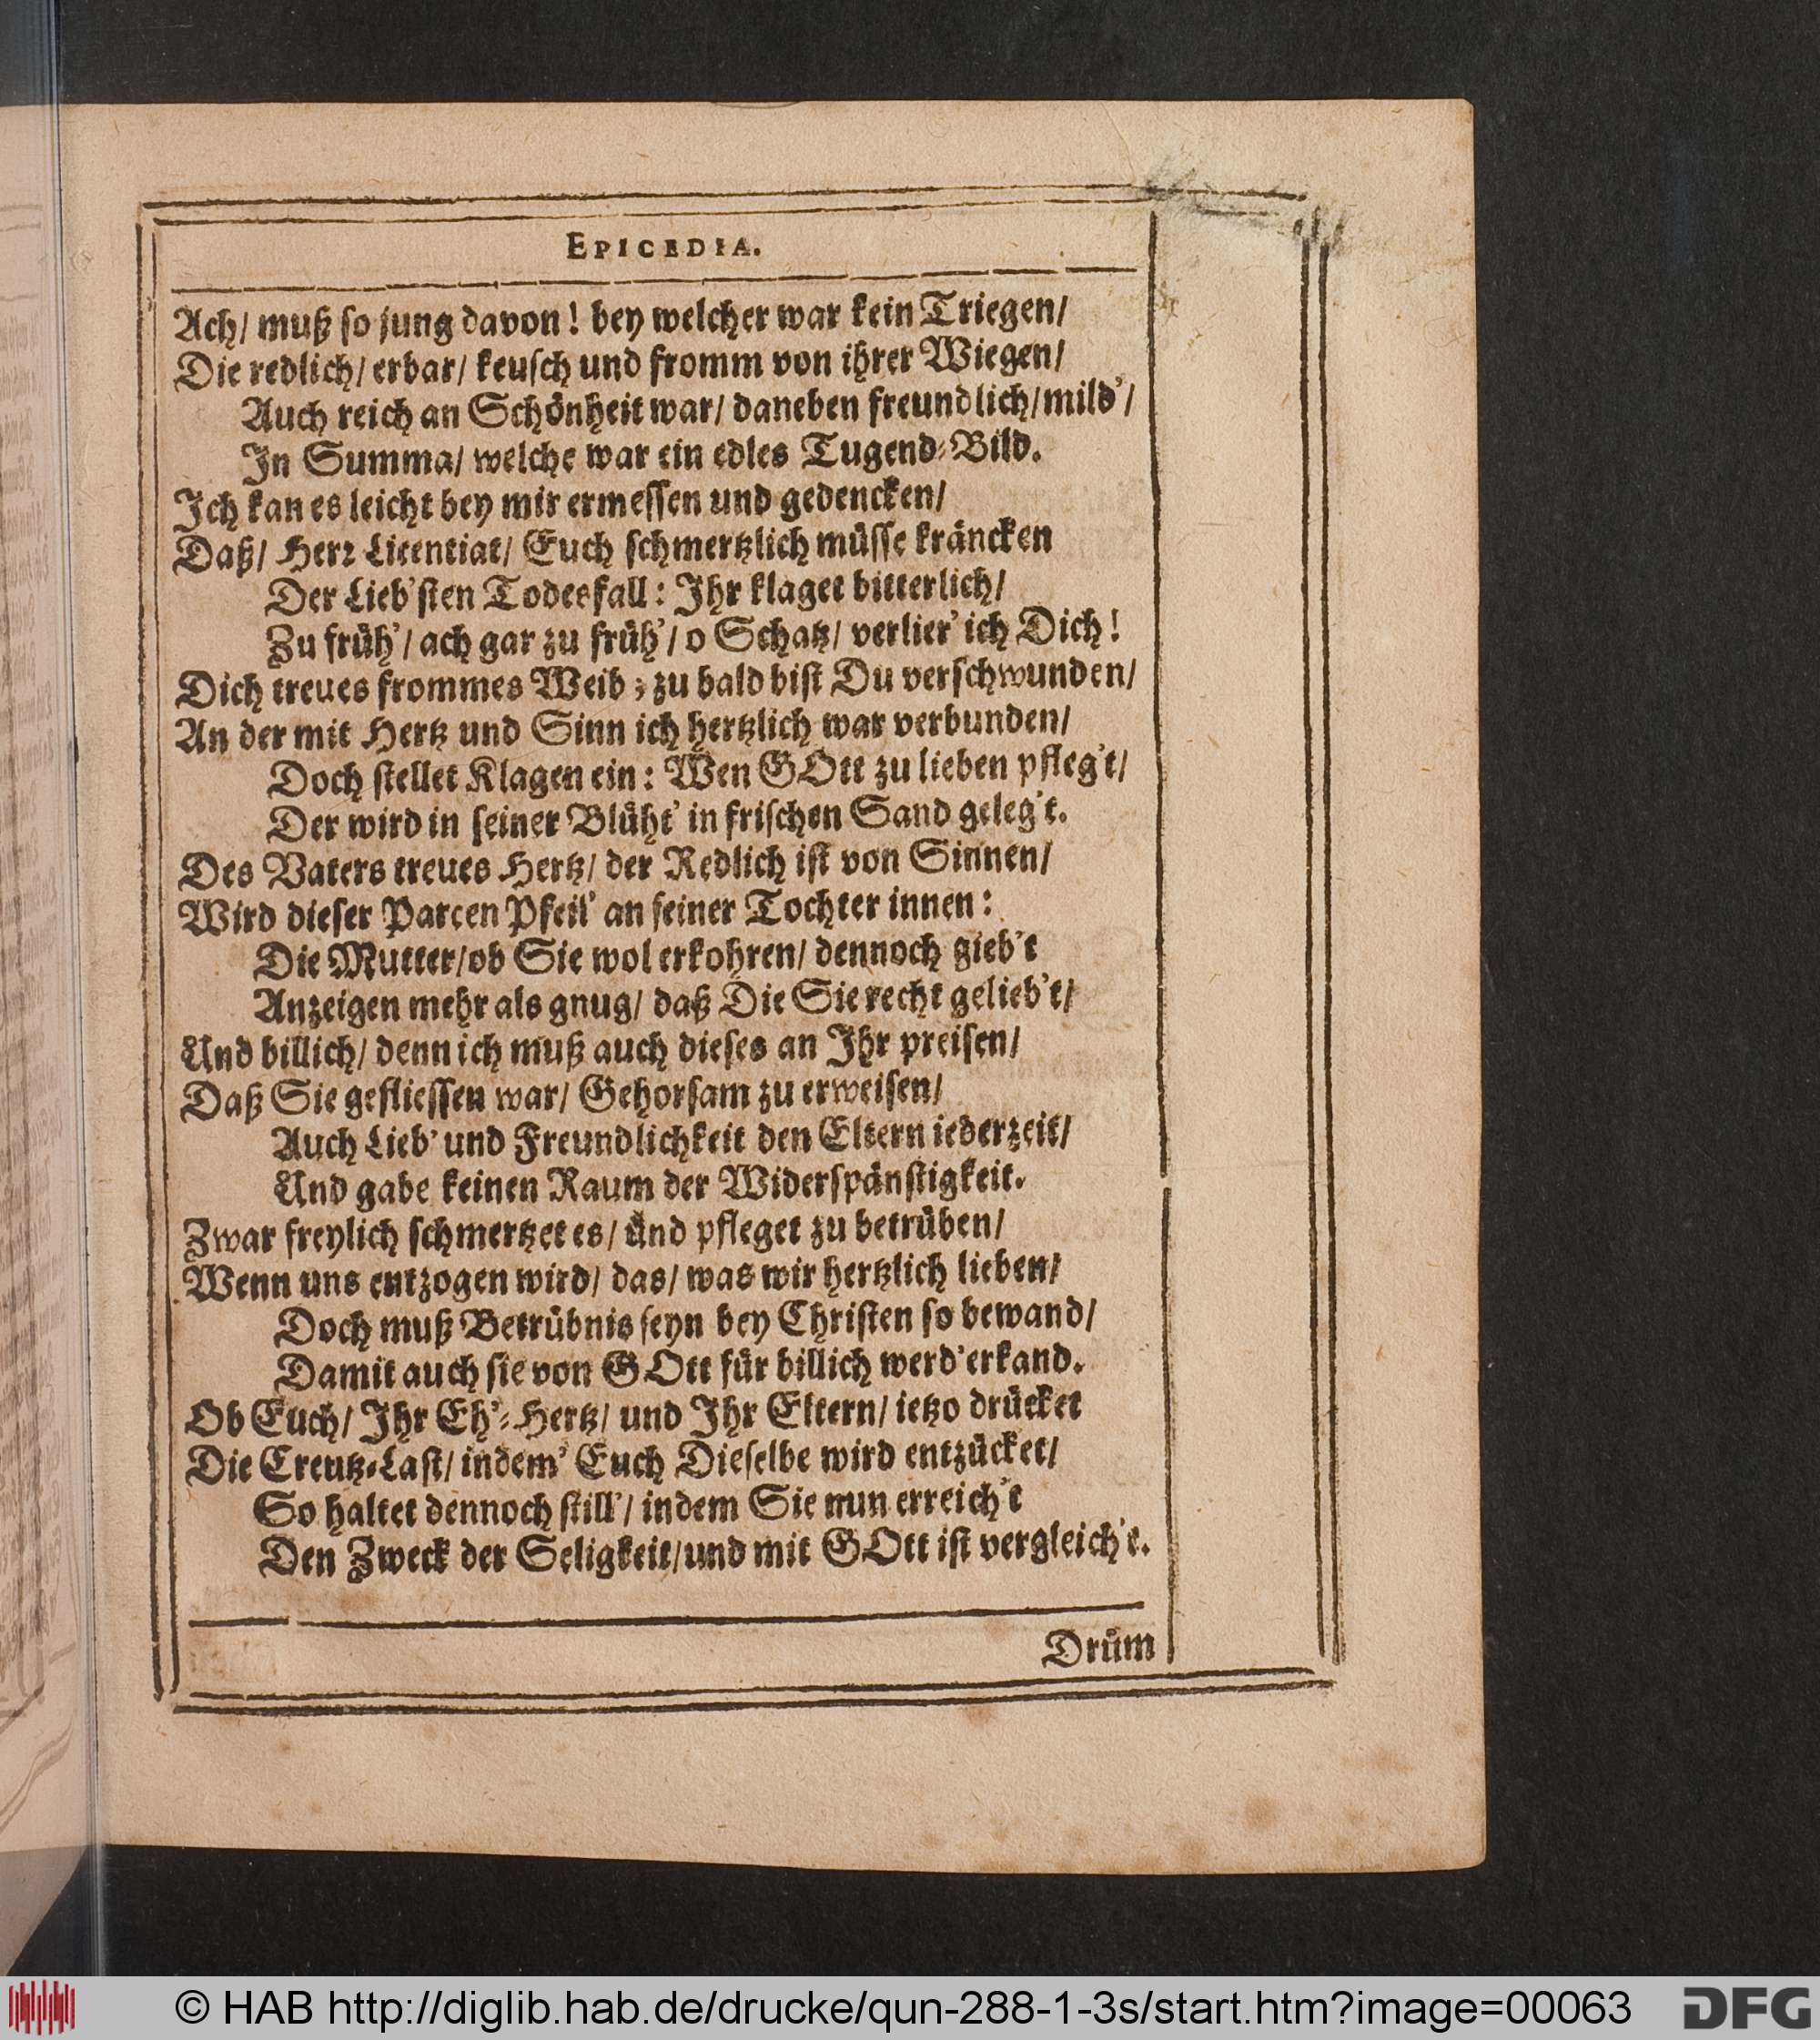 EPICEDIA.
Ach/ muß so jung davon! bey welcher war kein Triegen/
Die redlich/ erbar/ keusch und fromm von ihrer Wiegen/
Auch reich an Schönheit war/ daneben freundlich/ mild'/
In Summa/ welche war ein edles Tugend-Bild.
Ich kan es leicht bey mir ermessen und gedencken/
Daß/ Herr Licentiat/ Euch schmertzlich müsse kräncken
Der Lieb'sten Todesfall: Ihr klaget bitterlich/
Zu früh'/ ach gar zu früh'/ o Schatz/ verlier' ich Dich!
Dich treues frommes Weib; zu bald bist Du verschwunden/
An der mit Hertz und Sinn ich hertzlich war verbunden/
Doch stellet Klagen ein: Wen GOtt zu lieben pfleg't/
Der wird in seiner Blüht' in frischen Sand geleg't.
Des Vaters treues Hertz/ der Redlich ist von Sinnen/
Wird dieser Parcen Pfeil' an seiner Tochter innen:
Die Mutter/ ob Sie wol erkohren/ dennoch gieb't
Anzeigen mehr als gnug/ daß Die Sie recht gelieb't/
Und billich/ denn ich muß auch dieses an Ihr preisen/
Daß Sie gefliessen war/ Gehorsam zu erweisen/
Auch Lieb' und Freundlichkeit den Eltern iederzeit/
Und gabe keinen Raum der Widerspänstigkeit.
Zwar freylich schmertzet es/ und pfleget zu betrüben/
Wenn uns entzogen wird/ das/ was wir hertzlich lieben/
Doch muß Betrübnis seyn bey Christen so bewand/
Damit auch sie von GOtt für billich werd' erkand.
Ob Euch/ Ihr Eh'-Hertz/ und Ihr Eltern/ ietzo drücket
Die Creutz-Last/ indem' Euch Dieselbe wird entzücket/
So haltet dennoch still'/ indem Sie nun erreich't
Den Zweck der Seligkeit/ und mit GOtt ist vergleich't.
Drüm
© HAB http://diglib.hab.de/drucke/qun-288-1-3s/start.htm?image=00063
DFG